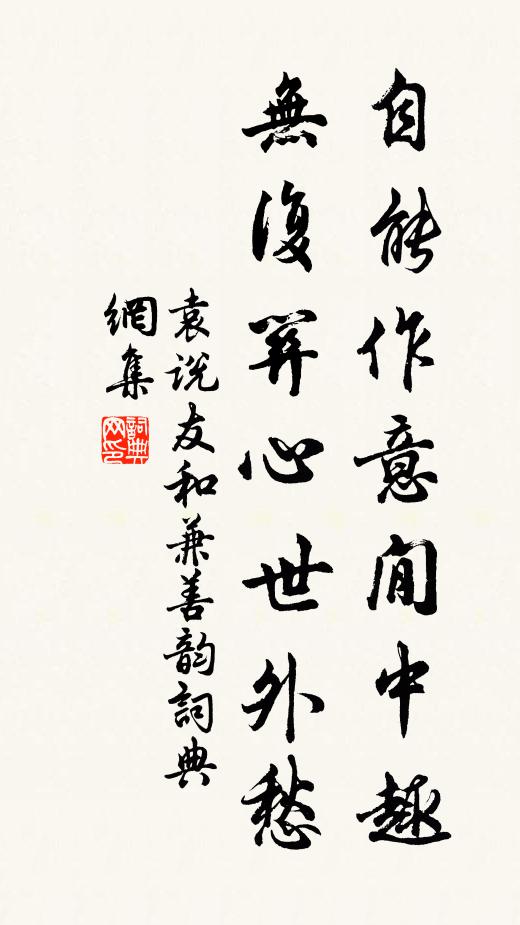 自能作意閒中趣
無復關心世外愁
袁說友和兼善韵詞典
網集
詞典
网印